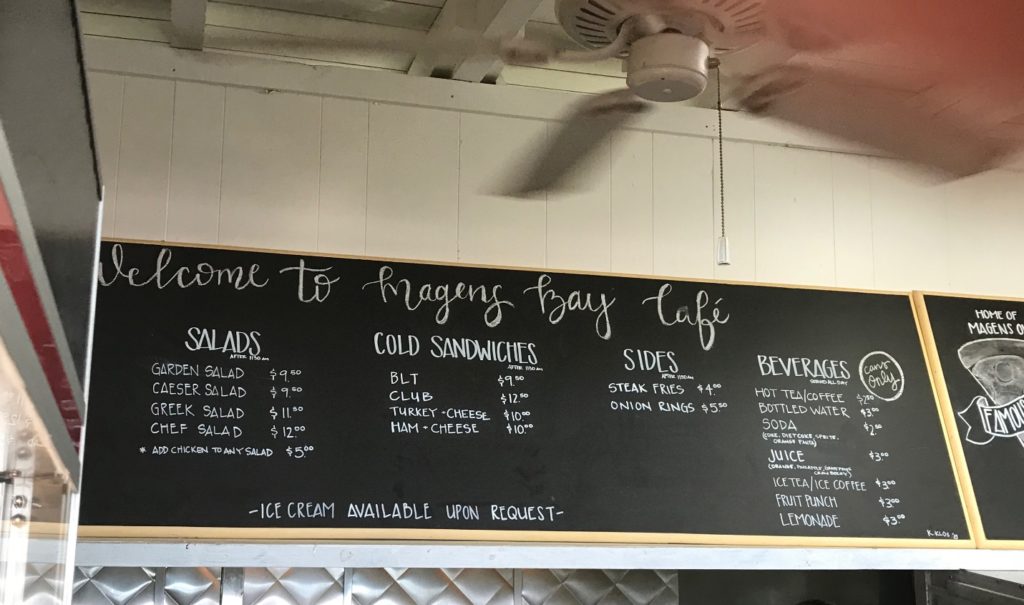 Welcome to Magens Bay Café
SALADS
AFTER 11:30 am
GARDEN SALAD $9.50
CAESER SALAD $9.50
GREEK SALAD $11.50
CHEF SALAD $12.00
* ADD CHICKEN TO ANY SALAD $5.00
COLD SANDWICHES
AFTER 11:30 am
BLT $9.50
CLUB $12.50
TURKEY-CHEESE $10.00
HAM-CHEESE $10.00
SIDES
AFTER 11:30 am
STEAK FRIES $4.00
ONION RINGS $5.50
BEVERAGES
SERVED ALL DAY
cans only
HOT TEA/COFFEE $2.50
BOTTLED WATER $3.00
SODA $2.50
(COKE, DIET COKE, SPRITE,
ORANGE FANTA)
JUICE $3.00
(ORANGE, PINEAPPLE, GRAPEFRUIT,
CRANBERRY)
ICE TEA/ICE COFFEE $3.00
FRUIT PUNCH $3.00
LEMONADE $3.00
-ICE CREAM AVAILABLE UPON REQUEST-
HOME OF
MAGENS